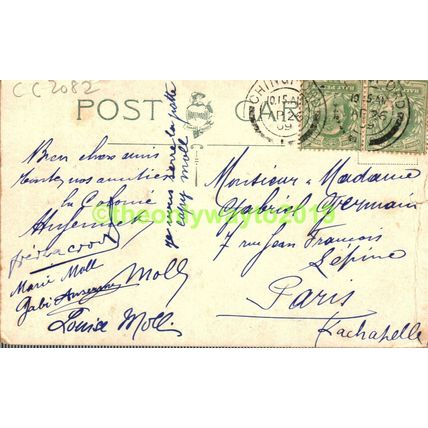 CC2082
POST CARD
CHINGFORD
10.15 AM
AP 26
09
Bien chers amis
toutes nos amitiés
la Colonne
Moll
Marie Moll
Gabi
Louise Moll.
je vous serre la patte
Moll
Monsieur & Madame
Gabriel Germain
7 rue Jean François
Lépine
Paris
Lachapelle
©theonlywayto2019